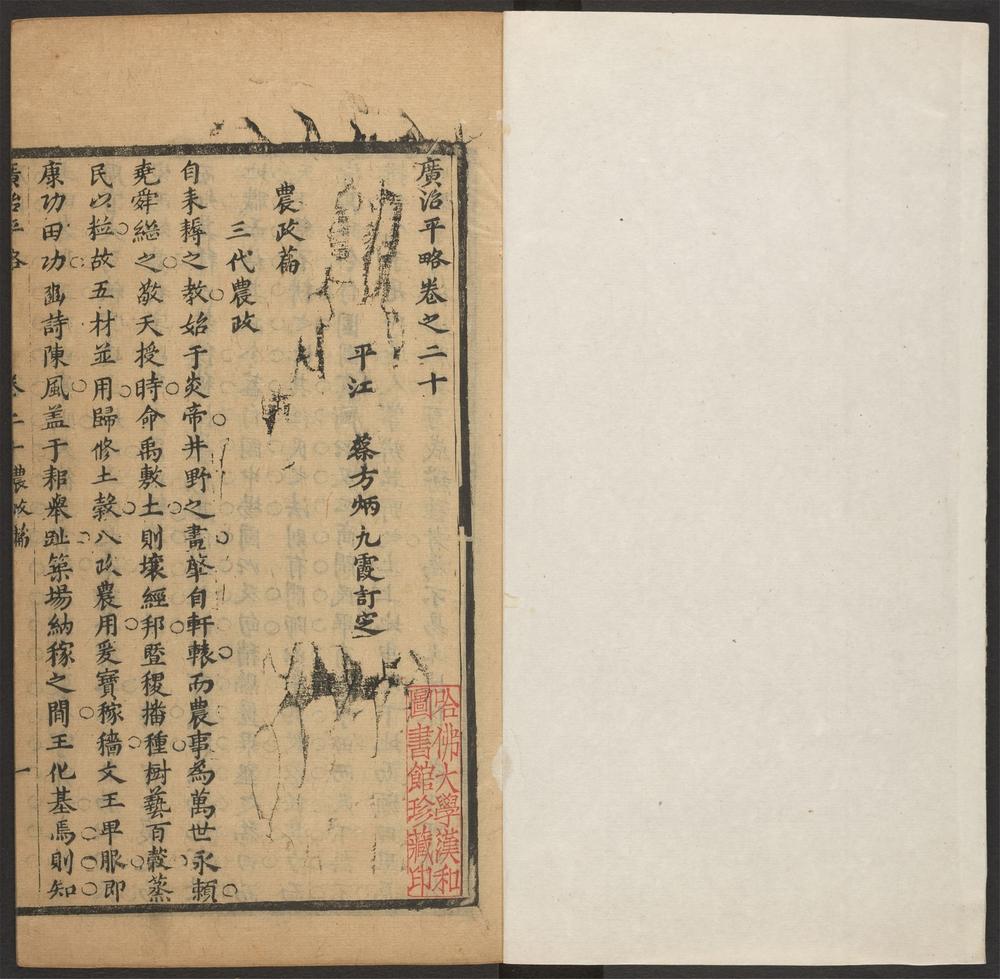 廣治平略卷之二十
平江 蔡方炳九霞訂定
農政篇
三代農政
自耒耨之教始于炎帝井野之畫肇自軒轅而農事為萬世永賴
堯舜繼之敬天授時命禹敷土則壤經邦暨稷播種樹藝百穀蒸
民以粒故五材並用歸修土穀八政農用爰寶稼穡文王卑服即
康功田功豳詩陳風蓋于耜舉趾築場納稼之間王化基焉則知
廣治平略 卷二十農政篇 一
哈佛大學漢和
圖書館珍藏印